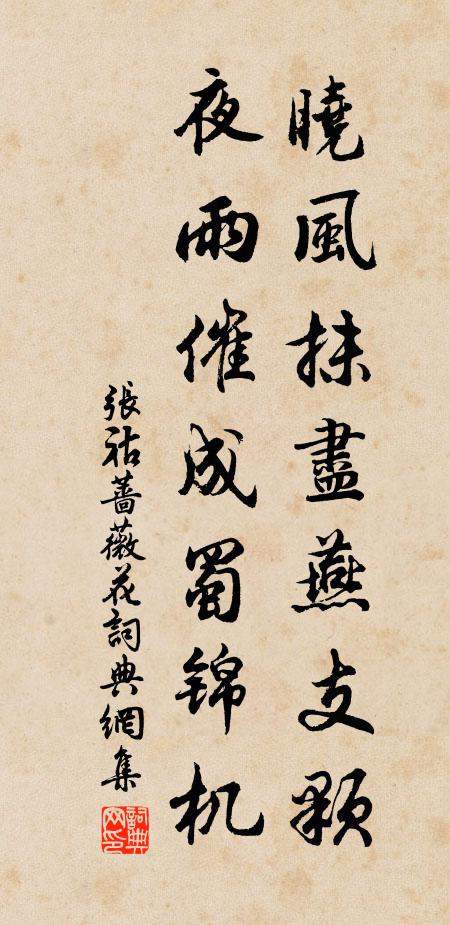 曉風抹盡燕支顆
夜雨催成蜀锦机
張祜薔薇花詞典網集
詞典网印